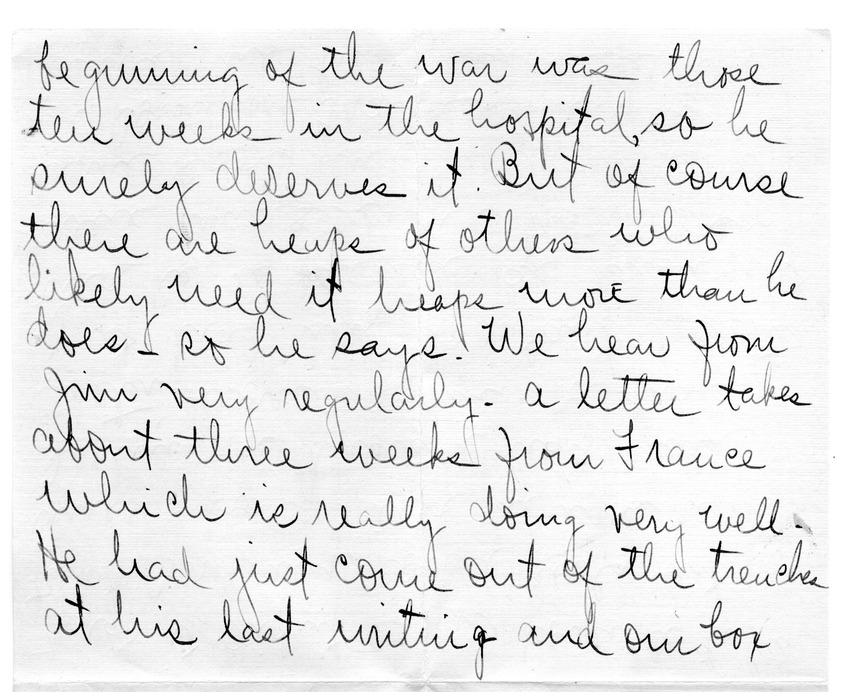 beginning of the war was those
ten weeks in the hospital, so he
surely deserves it. But of course
there are heaps of others who
likely need it heaps more than he
does - so he says. We hear from
Jim very regularly - a letter takes
about three weeks from France
which is really doing very well.
He had just come out of the trenches
at his last writing and our box